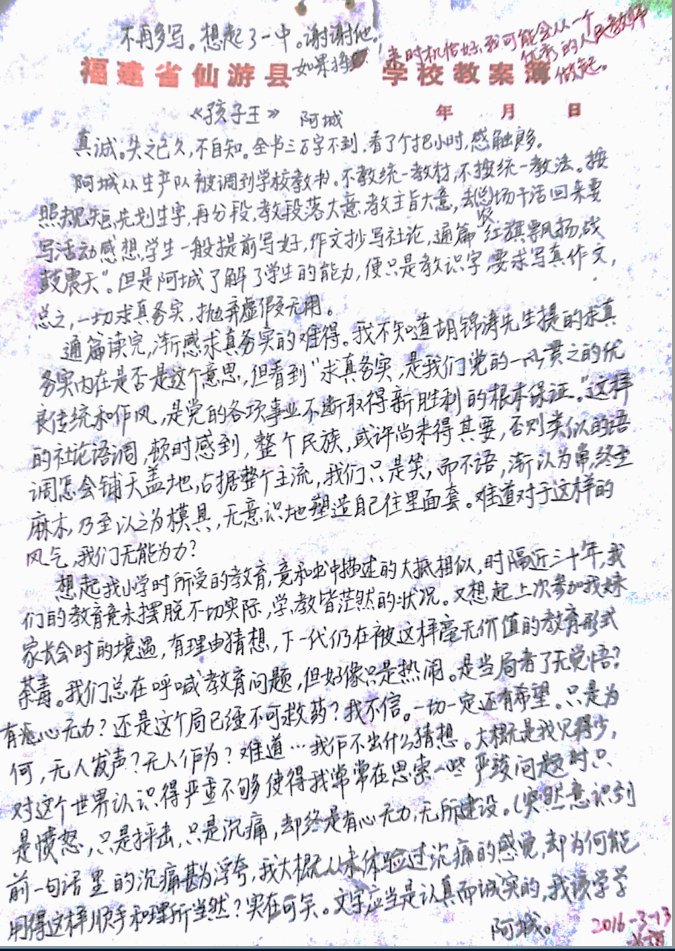 不再多写。想起了一中。谢谢他
如果将
来时机恰好,我可能会从一个
优秀的人民教师
做起。
福建省仙游县 学校教案簿
《孩子王》 阿城
年 月 日
真诚。失之已久,不自知。全书三万字不到,看了个把小时,感触良多。
阿城从生产队被调到学校教书。不教统一教材,不按统一教法。按
照规矩,先划生字,再分段,教段落大意,教主旨大意,去农场干活回来要
写活动感想,学生一般提前写好,作文抄写社论,通篇"红旗飘扬,战
鼓震天"。但是阿城了解了学生的能力,便只是教识字,要求写真作文,
总之,一切求真务实,抛弃虚假无用。
通篇读完,渐感求真务实的难得。我不知道胡锦涛先生提的求真
务实内在是否是这个意思,但看到"求真务实,是我们党的一以贯之的优
良传统和作风,是党的各项事业不断取得新胜利的根本保证。"这样
的社论语调,顿时感到,整个民族,或许尚未得其要,否则类似的语
调怎会铺天盖地,占据整个主流,我们只是笑,而不语,渐以为常,终至
麻木,乃至以之为模具,无意识地塑造自己往里面套。难道对于这样的
风气,我们无能为力?
想起我小学时所受的教育,竟和书中描述的大抵相似,时隔近三十年,我
们的教育竟未摆脱不切实际,学、教皆茫然的状况。又想起上次参加我妹
家长会时的境遇,有理由猜想,下一代仍在被这样毫无价值的教育形式
荼毒。我们总在呼喊教育问题,但好像只是热闹。是当局者了无觉悟?
有心无力?还是这个局已经不可救药?我不信。一切一定还有希望。只是为
何,无人发声?无人作为?难道…我作不出什么猜想。大概是我见得少,
对这个世界认识得严重不够使得我常常在思索一些严肃问题时只
是愤怒,只是抨击,只是沉痛,却终是有心无力,无所建设。(突然意识到
前一句话里的沉痛甚为浮夸,我大概从未体验过沉痛的感觉,却为何能
用得这样顺手和理所当然?实在可笑。文字应当是认真而诚实的,我该学学
阿城。)
2016-3-13